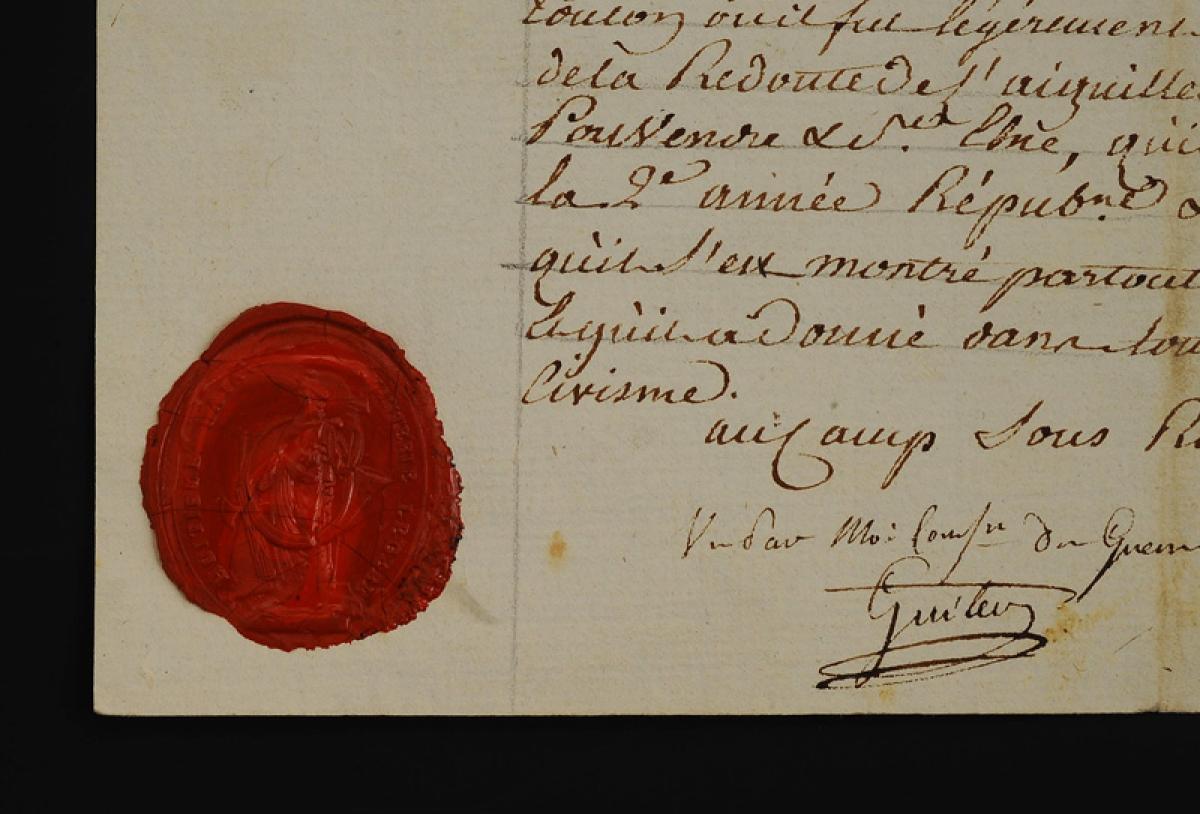 toulon ou il fut légérement
de la Redoute de l'aiguille
Portvendre & St. Elne, qu'il
la 2e année Républne &
qu'il s'est montré partout
& qu'il a donné dans tou
Civisme.
au Camp Sous R
Vu par Moi Comsre De Guerre